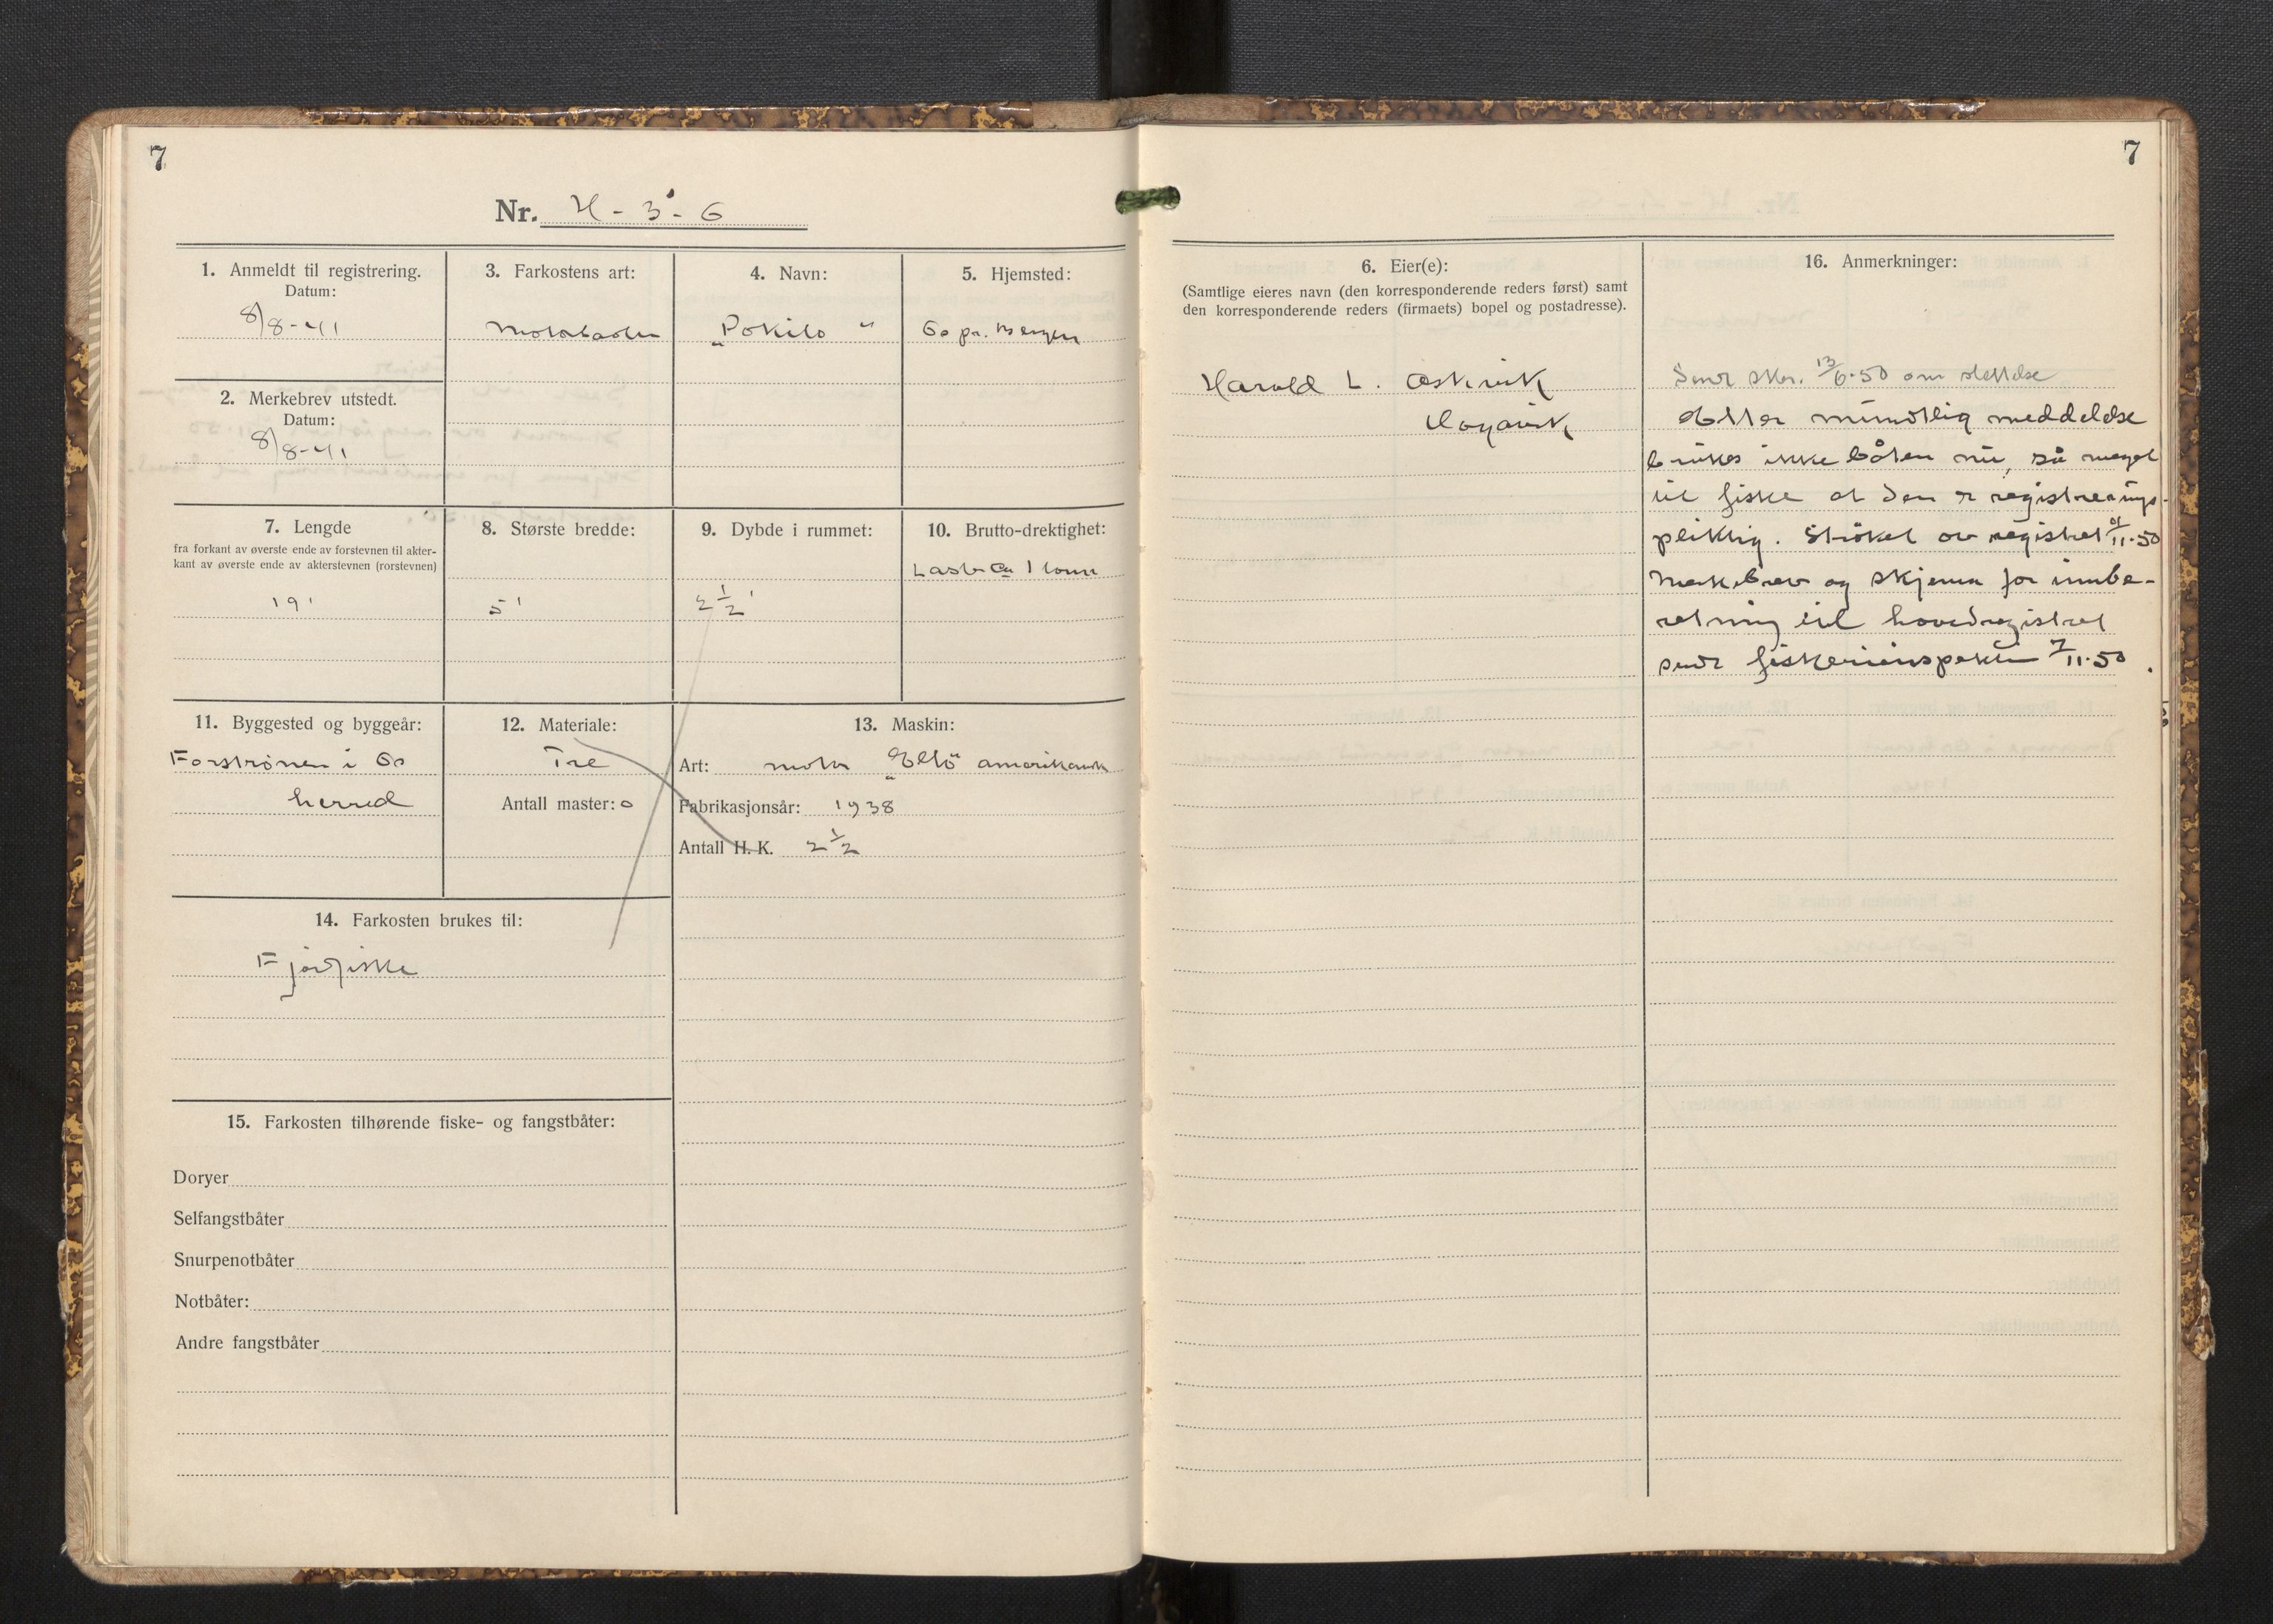 7
Nr. H - 3 - G
1. Anmeldt til registrering.
Datum:
8/8-41
2. Merkebrev utstedt.
Datum:
8/8-41
3. Farkostens art:
Motorbåten
4. Navn:
„Pokilo"
5. Hjemsted:
Os pr. Bergen
7. Lengde
fra forkant av øverste ende av forstevnen til akter-
kant av øverste ende av akterstevnen (rorstevnen)
19'
8. Største bredde:
5'
9. Dybde i rummet:
2 1/2'
10. Brutto-drektighet:
Laster ca 1 tonn
11. Byggested og byggeår:
Forstrønen i Os
herred
12. Materiale:
Tre
Antall master: 0
13. Maskin:
Art: motor „Elto" amerikansk
Fabrikasjonsår: 1938
Antall H. K. 2 1/2
14. Farkosten brukes til:
Fjordfiske
15. Farkosten tilhørende fiske- og fangstbåter:
Doryer
Selfangstbåter
Snurpenotbåter
Notbåter:
Andre fangstbåter
7
6. Eier(e):
(Samtlige eieres navn (den korresponderende reders først) samt
den korresponderende reders (firmaets) bopel og postadresse).
Harald L. Askvik
Hagavik
16. Anmerkninger:
Sendt skr. 13/6-50 om slettelse
Etter muntlig meddelelse
brukes ikke båten nu, så meget
til fiske at den er registrerings-
pliktig. Strøket av registret /11-50
Merkebrev og skjema for innbe-
retning til hovedregistret
sendt fiskeriinspektør 7/11-50.